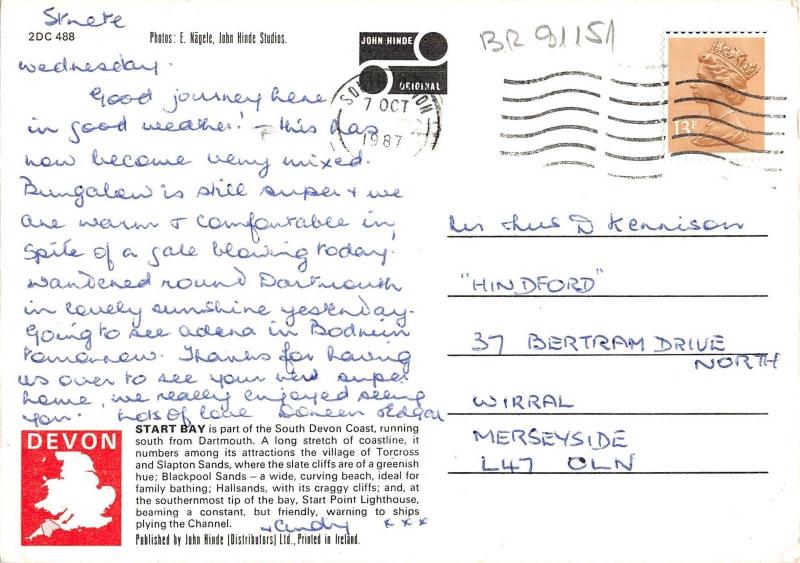 Strete
2DC 488
Photos: E. Nägele, John Hinde Studios.
JOHN HINDE
ORIGINAL
BR 91151
7 OCT
1987
13P
Wednesday.
Good journey here
in good weather! - this has
now become very mixed.
Bungalow is still super & we
are warm & comfortable in
spite of a gale blowing today.
Wandered round Dartmouth
in lovely sunshine yesterday.
Going to see Adena in Bodmin
tomorrow. Thanks for having
us over to see your new super
home, we really enjoyed seeing
you. Lots of love Doreen Edgar
& Cindy xxx
D Kennison
"HINDFORD"
37 BERTRAM DRIVE
NORTH
WIRRAL
MERSEYSIDE
L47 0LN
DEVON
START BAY is part of the South Devon Coast, running
south from Dartmouth. A long stretch of coastline, it
numbers among its attractions the village of Torcross
and Slapton Sands, where the slate cliffs are of a greenish
hue; Blackpool Sands – a wide, curving beach, ideal for
family bathing; Hallsands, with its craggy cliffs; and, at
the southernmost tip of the bay, Start Point Lighthouse,
beaming a constant, but friendly, warning to ships
plying the Channel.
Published by John Hinde (Distributors) Ltd., Printed in Ireland.